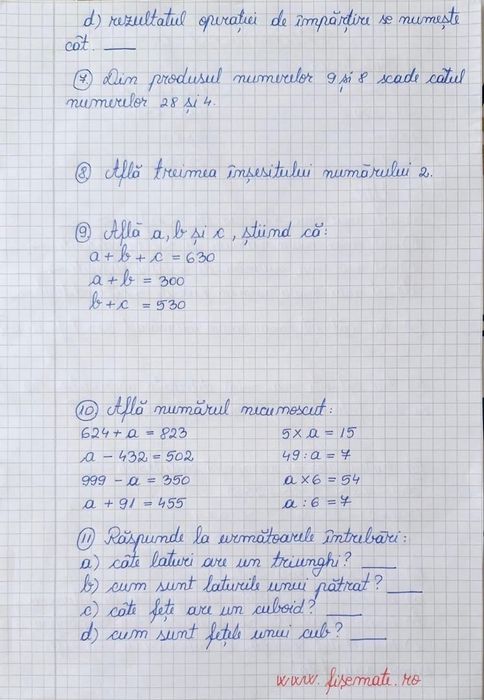 d) rezultatul operației de împărțire se numește
cât. ____
7 Din produsul numerelor 9 și 8 scade câtul
numerelor 28 și 4.
8 Află treimea înșesitului numărului 2.
9 Află a, b și c, știind că:
a + b + c = 630
a + b = 300
b + c = 530
10 Află numărul necunoscut:
624 + a = 823 5 x a = 15
a - 432 = 502 49 : a = 7
999 - a = 350 a x 6 = 54
a + 91 = 455 a : 6 = 7
11 Răspunde la următoarele întrebări:
a) câte laturi are un triunghi? ____
b) cum sunt laturile unui pătrat? ____
c) câte fețe are un cuboid? ____
d) cum sunt fețele unui cub? ____
www.fisemate.ro